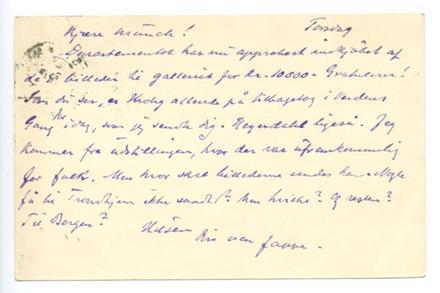 Kjære Munch! Torsdag
Departementet har nu approbert indkjøbet af
de billeder til galleriet for kr. 10000 - Gratulerer!
Som du ser, er Krohg allerede på tilbagetog i Verdens
Gang i dag, som jeg sendte dig. Heyerdahl ligeså. Jeg
kommer fra udstillingen, hvor der var ufremkommelig
for folk. Men hvor skal billederne sendes hen. Nogle
få til Trondhjem ikke sandt? Men hvilke? Og resten?
Til Bergen? Hilsen
Din ven Jappe.